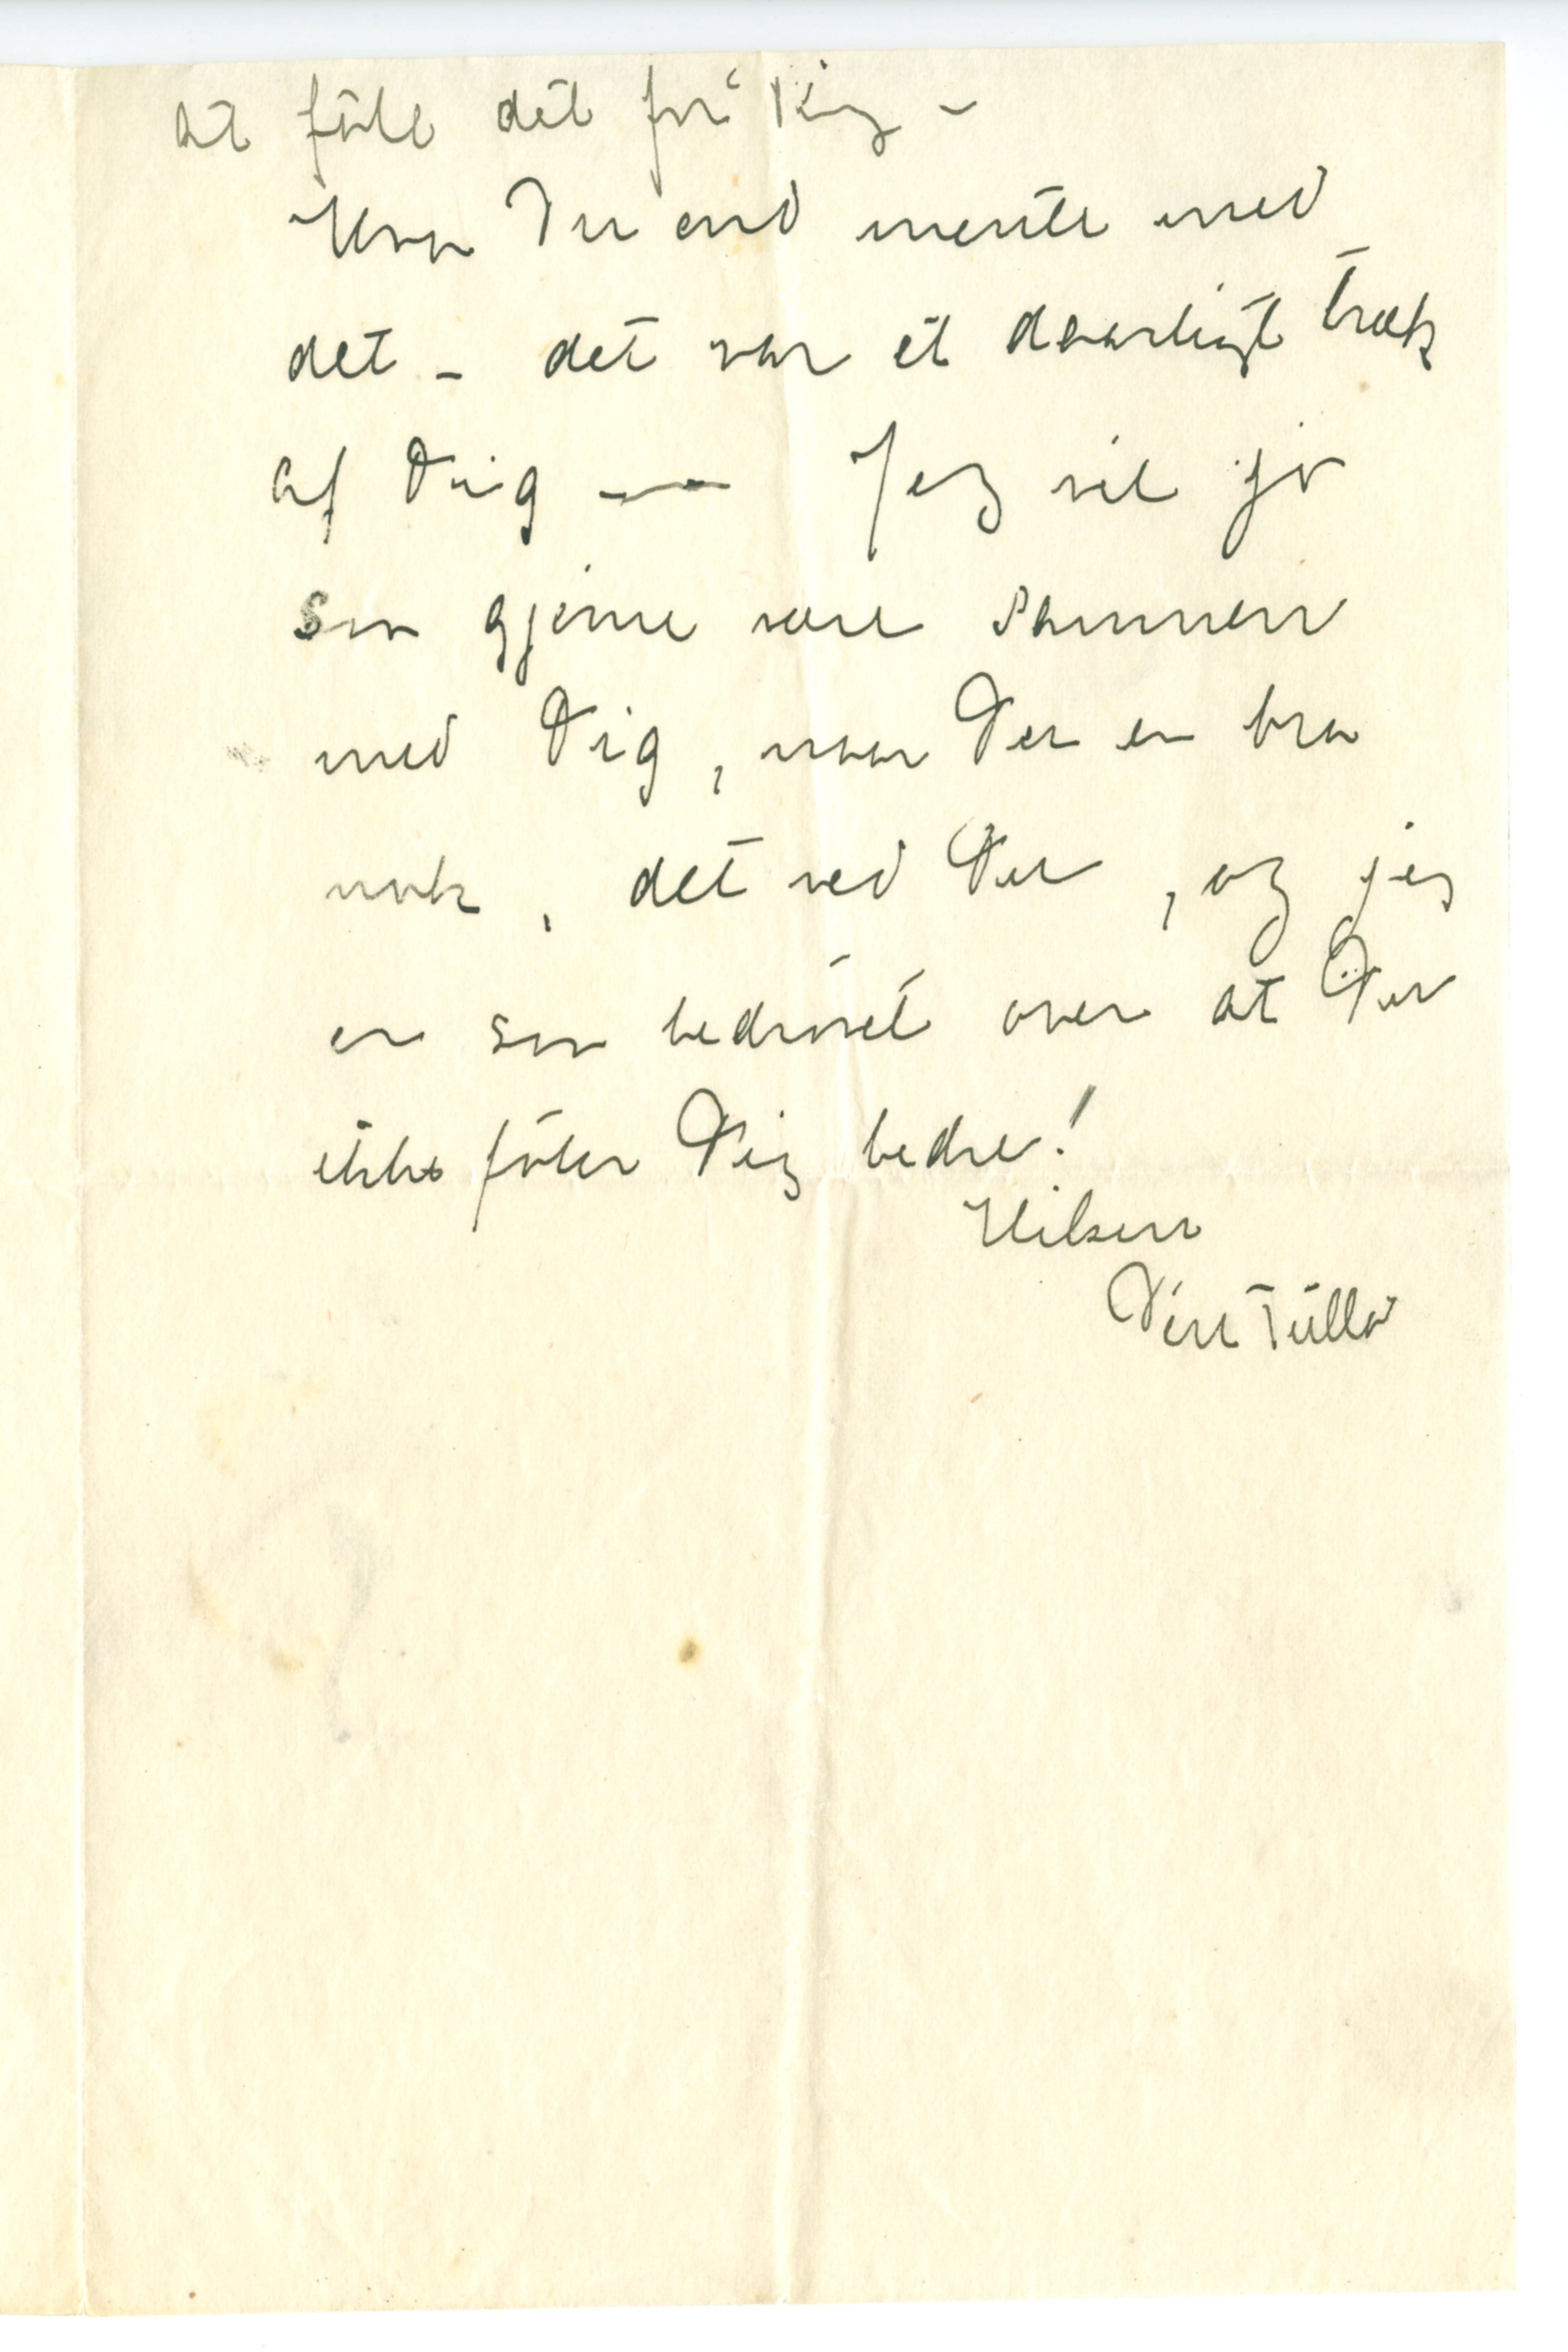 at føle det for Dig –
Hva Du end mente med
det – det var et daarligt træk
af Dig — Jeg vil jo
saa gjerne være sammen
med Dig, naar Du er bra
nok, det ved Du, og jeg
er saa bedrøvet over at Du
ikke føler Dig bedre!
Hilsen
Din Tulla